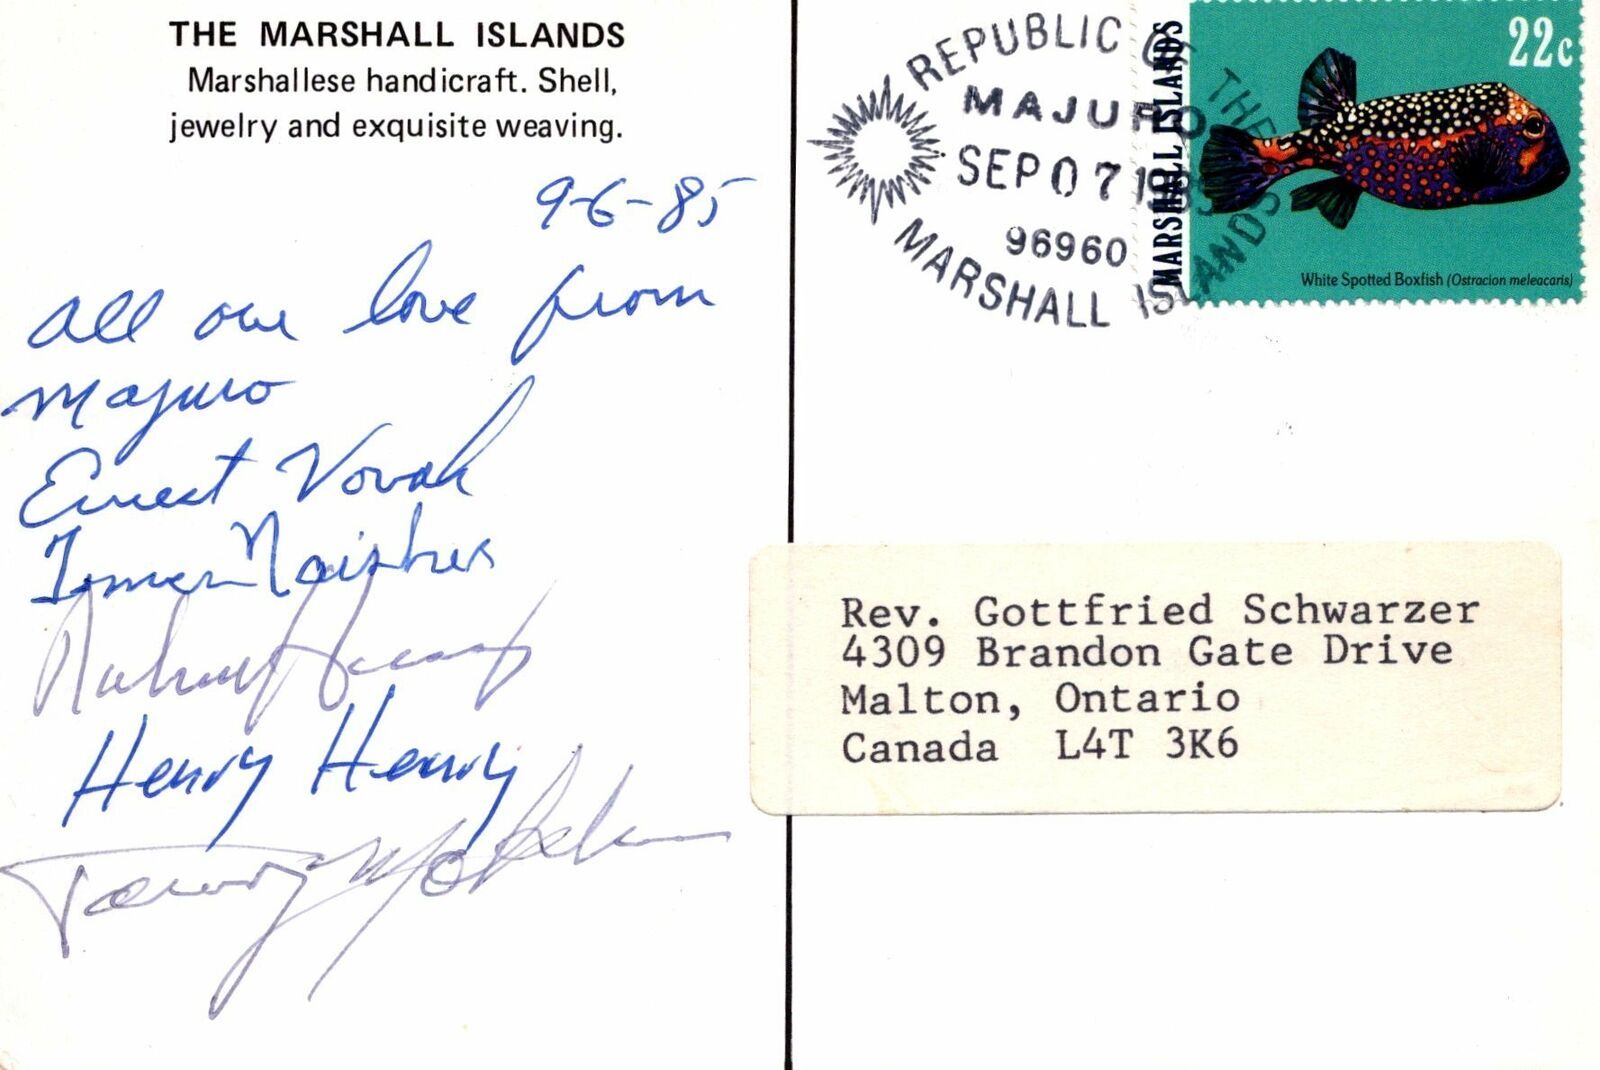 THE MARSHALL ISLANDS
Marshallese handicraft. Shell,
jewelry and exquisite weaving.
9-6-85
All our love from
Majuro
Ernest Novak
Henry Henry
REPUBLIC OF THE
MAJURO
SEP 07 1985
96960
MARSHALL ISLANDS
MARSHALL ISLANDS
22c
White Spotted Boxfish (Ostracion meleacaris)
Rev. Gottfried Schwarzer
4309 Brandon Gate Drive
Malton, Ontario
Canada L4T 3K6